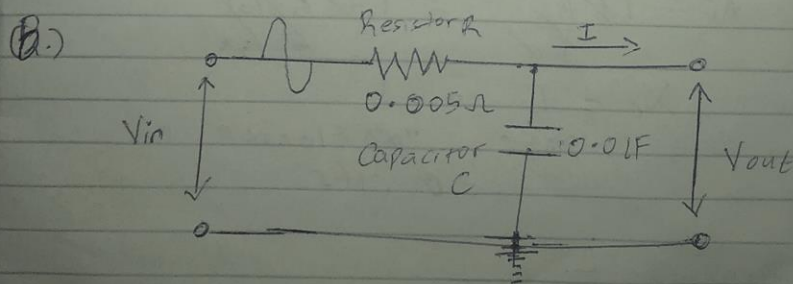 B.)
Resistor R
I
0.005Ω
Vin
Capacitor
C
0.01F
Vout